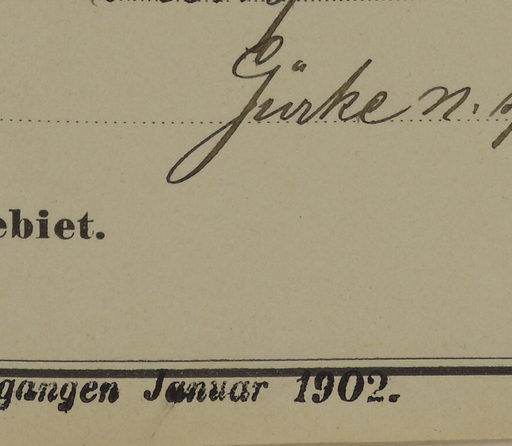 Gürke n.
ebiet.
gangen Januar 1902.